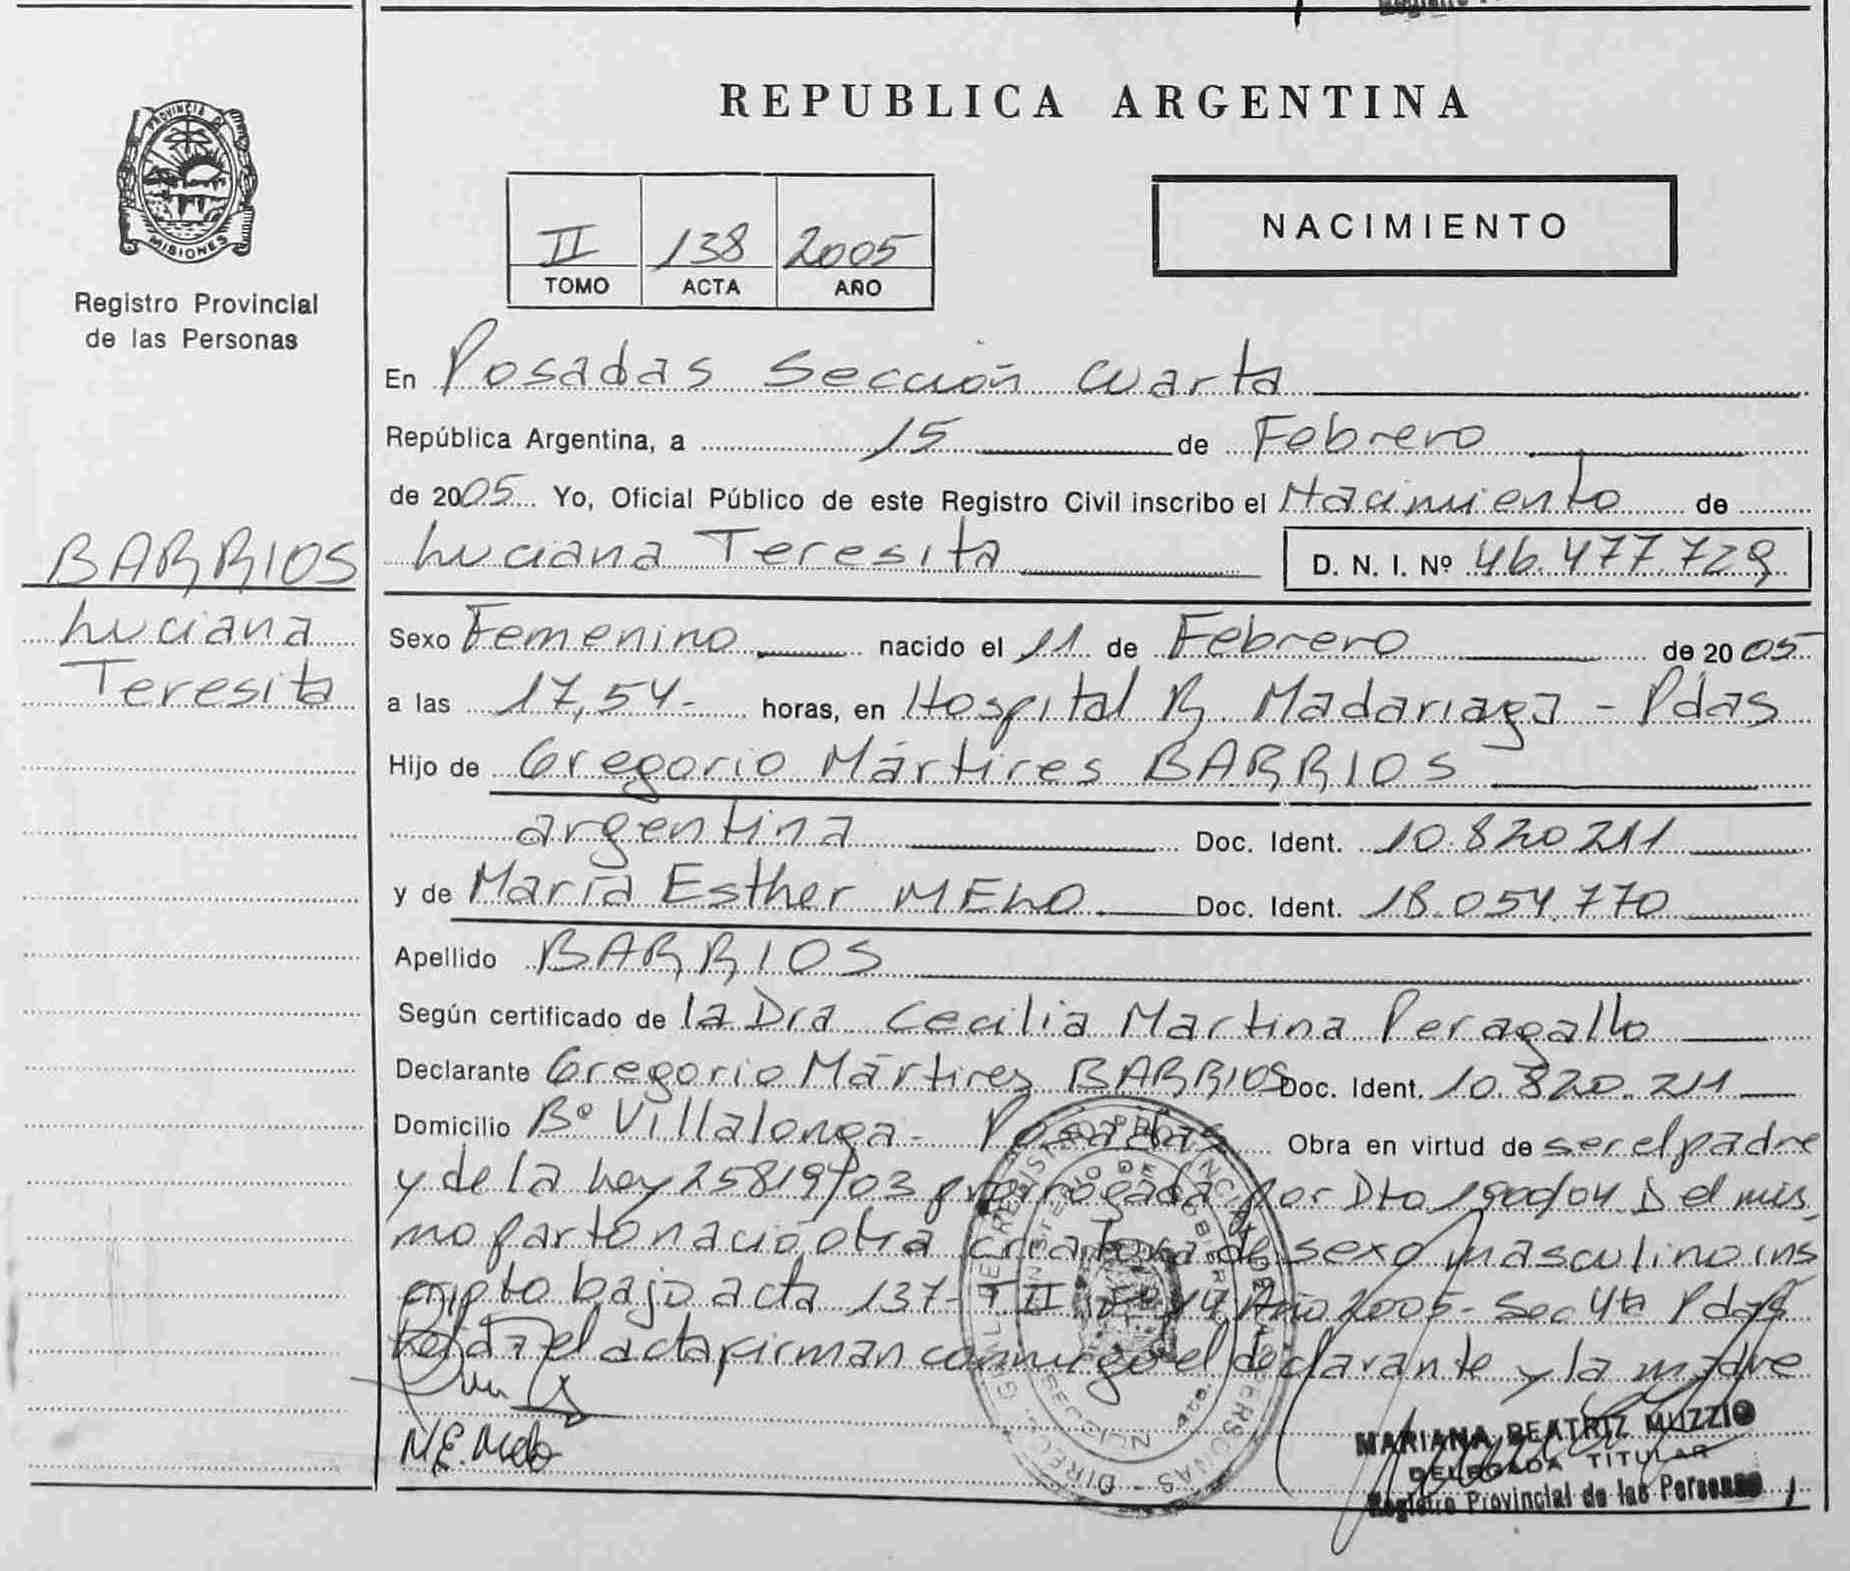 PROVINCIA DE
MISIONES
Registro Provincial
de las Personas
BARRIOS
Luciana
Teresita
REPUBLICA ARGENTINA
II 138 2005
TOMO ACTA AÑO
NACIMIENTO
En Posadas Sección Cuarta
República Argentina, a 15 de Febrero
de 2005 Yo, Oficial Público de este Registro Civil inscribo el Nacimiento de
Luciana Teresita D. N. I. Nº 46.477.729
Sexo Femenino nacido el 11 de Febrero de 2005
a las 17,54- horas, en Hospital R. Madariaga - Pdas
Hijo de Gregorio Mártires BARRIOS
argentina Doc. Ident. 10.820.211
y de María Esther MELO Doc. Ident. 18.054.770
Apellido BARRIOS
Según certificado de la Dra Cecilia Martina Peragallo
Declarante Gregorio Mártires BARRIOS Doc. Ident. 10.820.211
Domicilio Bº Villalonga - Posadas Obra en virtud de ser el padre
y de la Ley 25819/03 prorrogada por Dto 1900/04. Del mis
mo parto nació otra criatura de sexo masculino ins
cripto bajo acta 137- T II Año 2005- Sec 4ta Pdas
Leída el acta firman conmigo el declarante y la madre
M.E. Melo
MARIANA BEATRIZ MUZZIO
DELEGADA TITULAR
Registro Provincial de las Personas